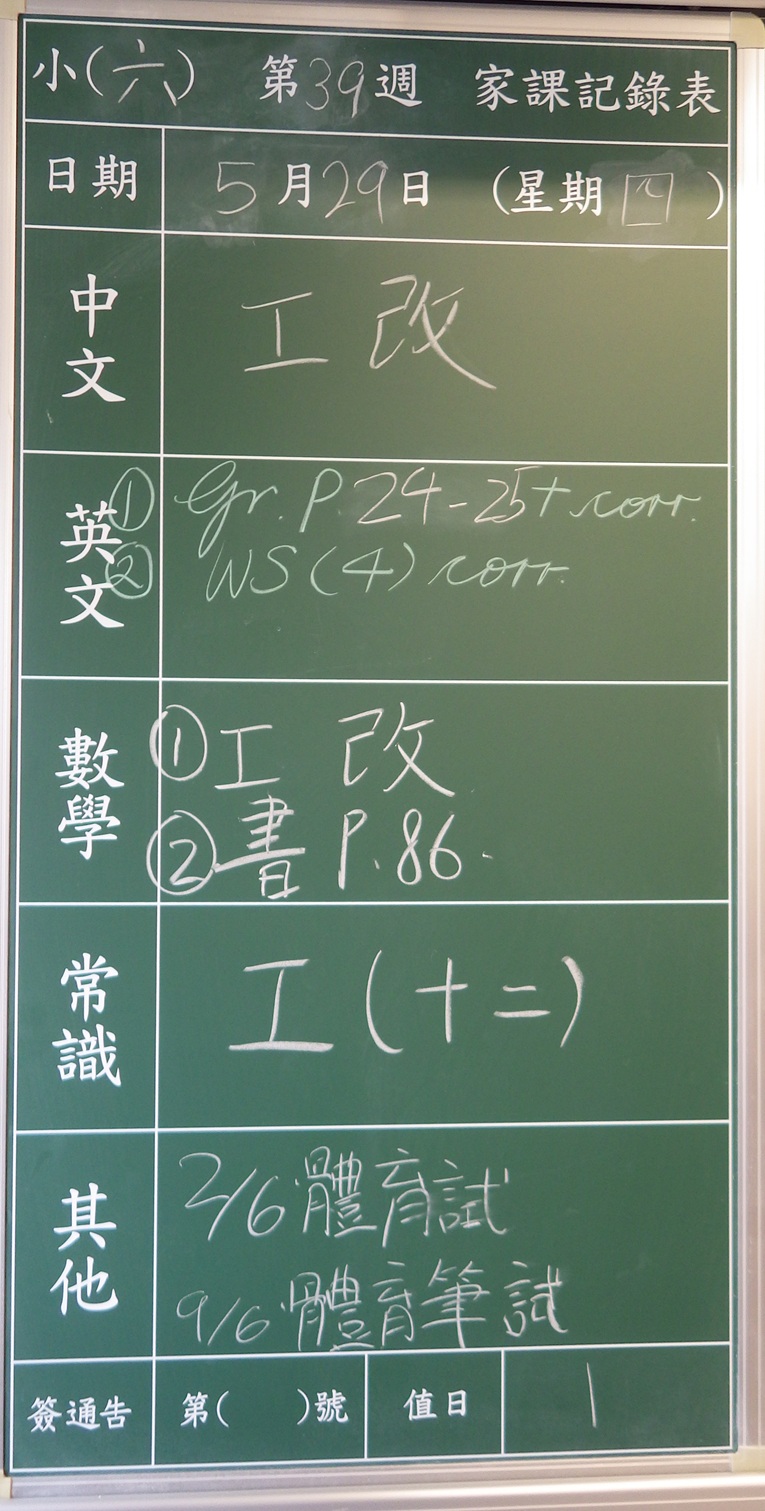 小(六) 第39週 家課記錄表
日期 5月29日 (星期四)
中文 工改
英文 ① Gr. P. 24-25+corr.
② WS(4) corr.
數學 ①工 改
②書 P.86.
常識 工(十二)
其他 2/6 體育試
9/6 體育筆試
簽通告 第( )號 值日 1